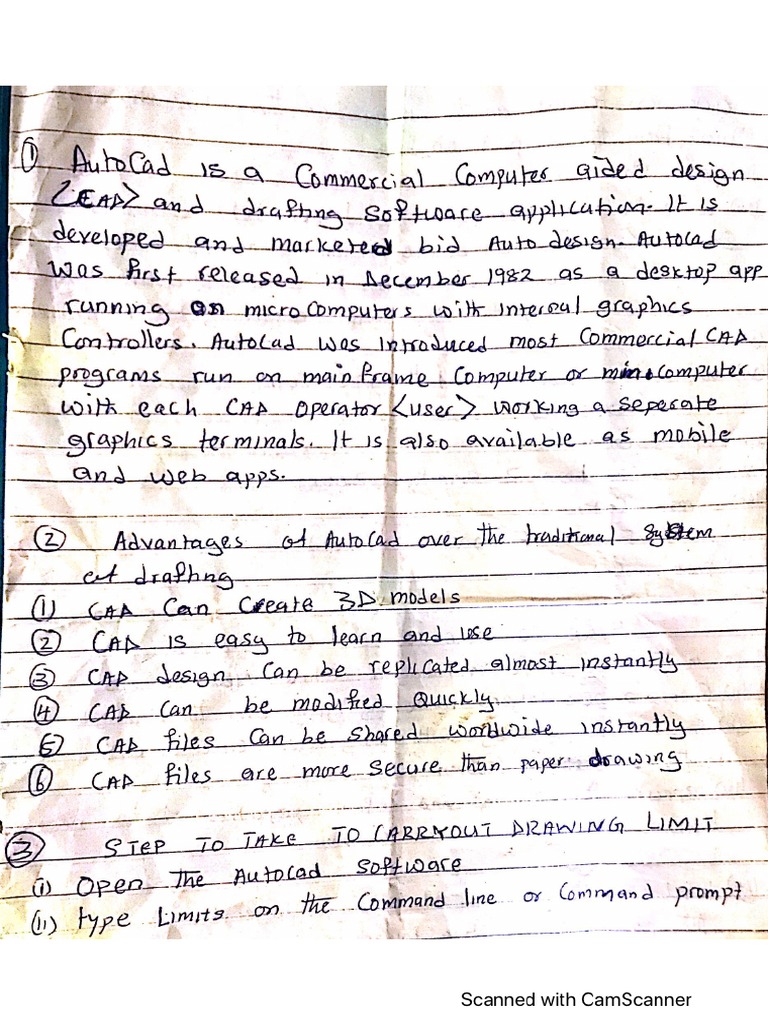 ① AutoCad is a Commercial Computer aided design
<CAD> and drafting Software application. It is
developed and marketed bid Auto design. Autocad
was first released in December 1982 as a desktop app
running on microcomputers with internal graphics
Controllers. AutoCad was introduced most Commercial CAD
programs run on mainframe Computer or minicomputer
with each CAD Operator <user> working a seperate
graphics terminals. It is also available as mobile
and web apps.
② Advantages of AutoCad over the traditional System
of drafting
① CAD Can Create 3D models
② CAD is easy to learn and use
③ CAD design Can be replicated almost instantly
④ CAD Can be modified Quickly
⑤ CAD files Can be shared worldwide instantly
⑥ CAD files are more secure than paper drawing
③ STEP TO TAKE TO CARRYOUT DRAWING LIMIT
(i) Open The Autocad Software
(ii) type Limits on the Command line or Command prompt
Scanned with CamScanner